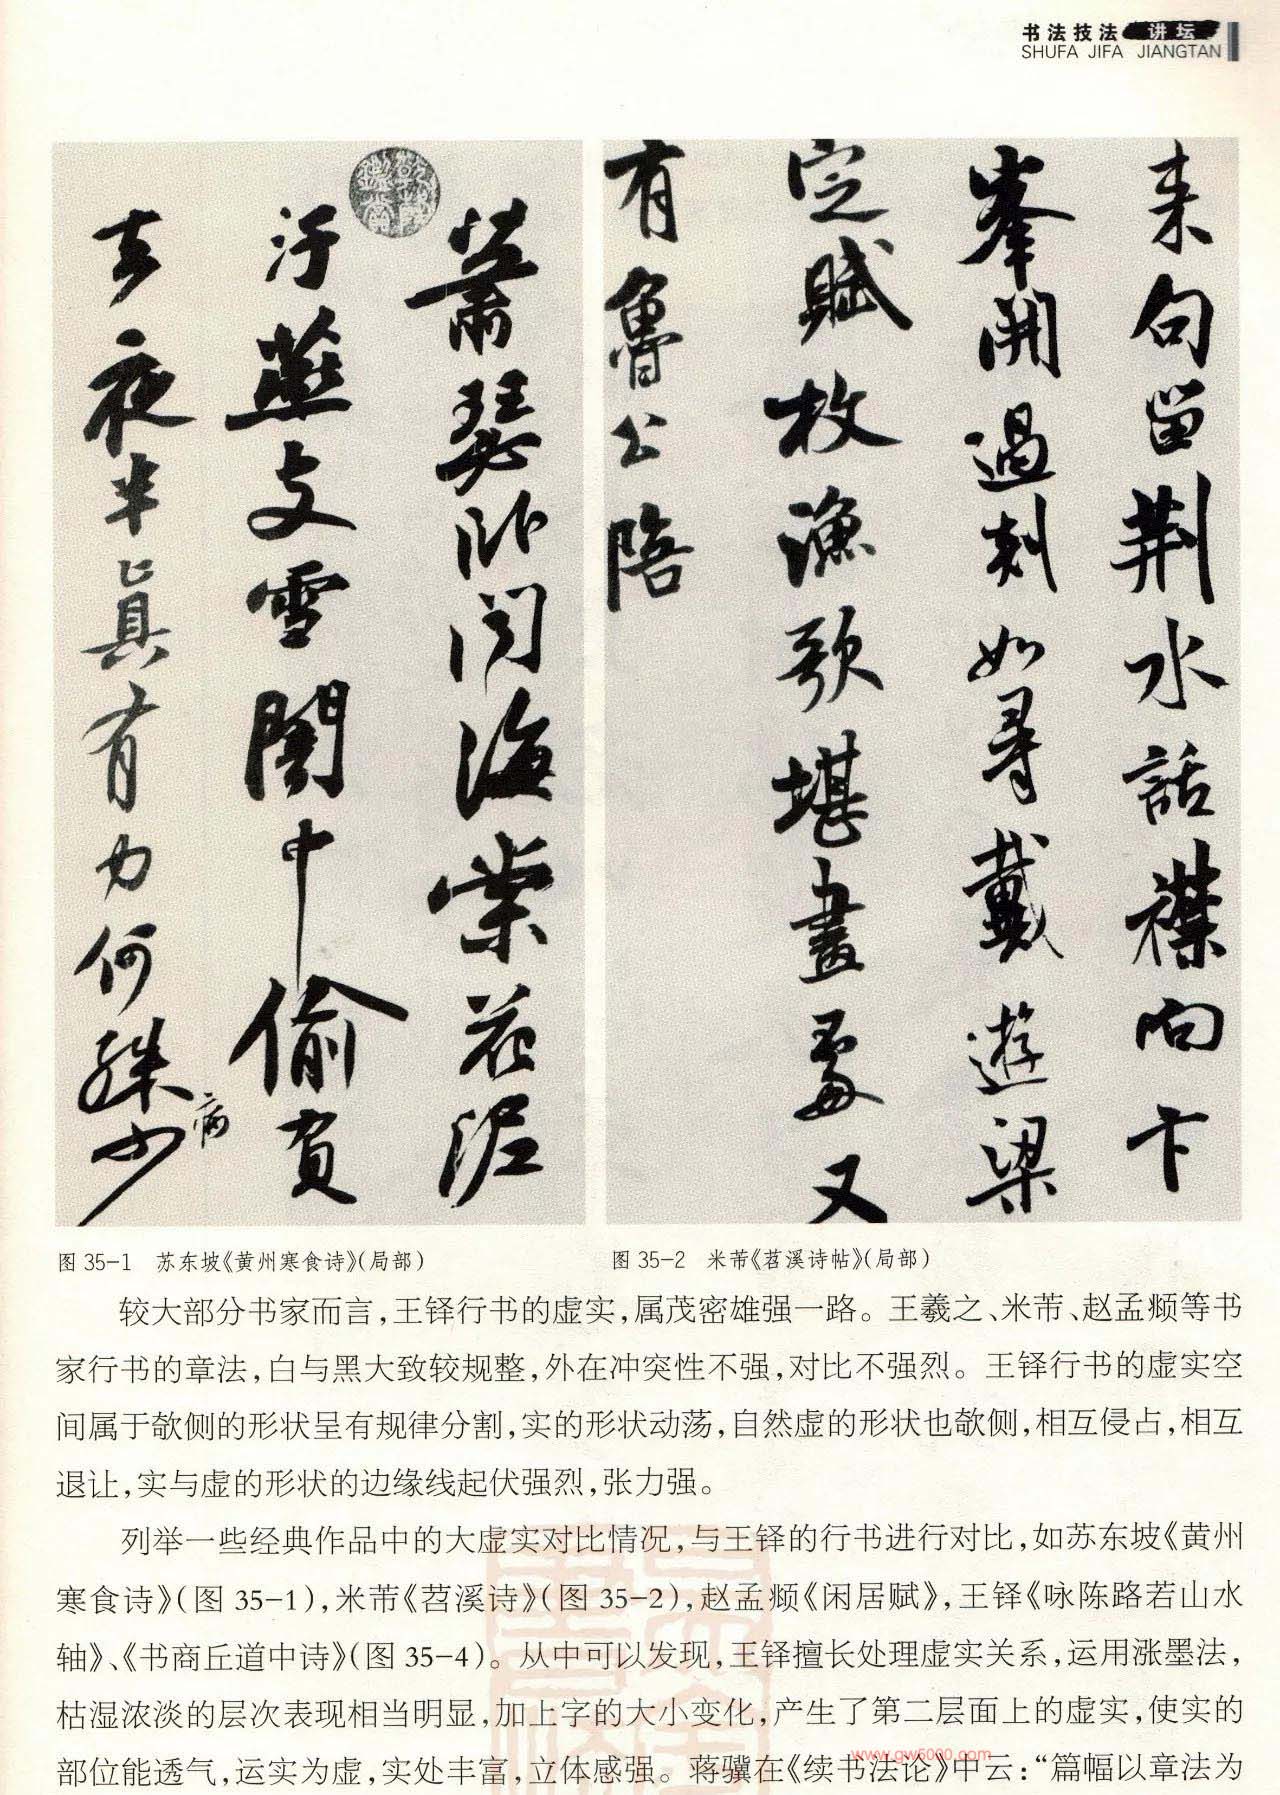 书法技法 讲坛
SHUFA JIFA JIANGTAN
蕭瑟卧聞海棠花泥
汙燕支雪闇中偷負
去夜半真有力何殊少
病
来句留荆水話襟向卞
峯開過剡如尋戴遊梁
定賦枚漁歌堪畫處又
有魯公陪
图 35-1 苏东坡《黄州寒食诗》(局部)
图 35-2 米芾《苕溪诗帖》(局部)
较大部分书家而言,王铎行书的虚实,属茂密雄强一路。王羲之、米芾、赵孟頫等书
家行书的章法,白与黑大致较规整,外在冲突性不强,对比不强烈。王铎行书的虚实空
间属于欹侧的形状呈有规律分割,实的形状动荡,自然虚的形状也欹侧,相互侵占,相互
退让,实与虚的形状的边缘线起伏强烈,张力强。
列举一些经典作品中的大虚实对比情况,与王铎的行书进行对比,如苏东坡《黄州
寒食诗》(图 35-1),米芾《苕溪诗》(图 35-2),赵孟頫《闲居赋》,王铎《咏陈路若山水
轴》、《书商丘道中诗》(图 35-4)。从中可以发现,王铎擅长处理虚实关系,运用涨墨法,
枯湿浓淡的层次表现相当明显,加上字的大小变化,产生了第二层面上的虚实,使实的
部位能透气,运实为虚,实处丰富,立体感强。蒋骥在《续书法论》中云:“篇幅以章法为
www.gw5000.com